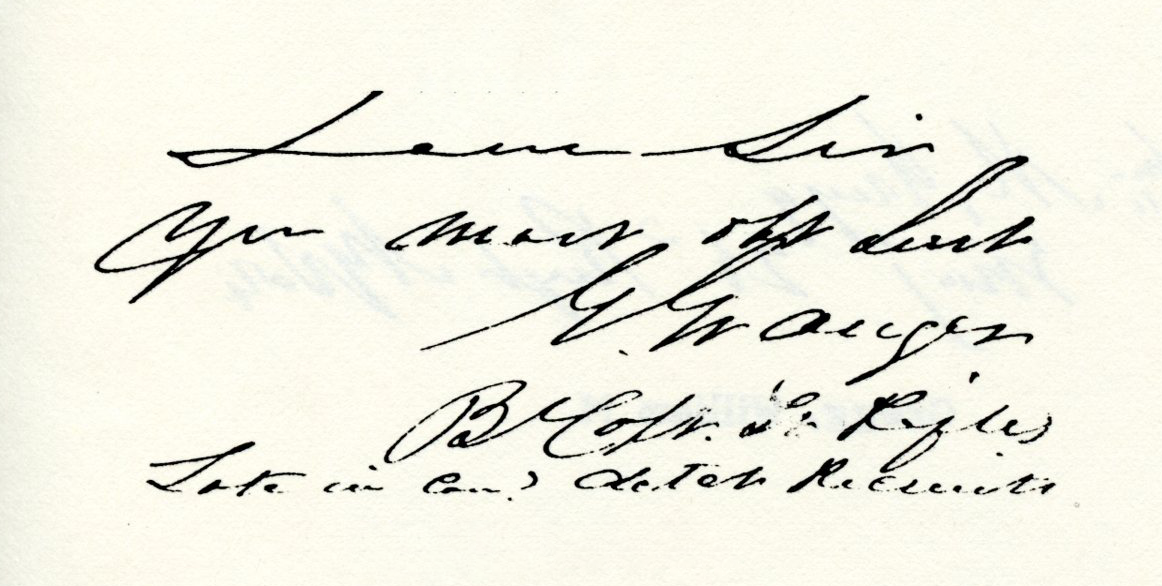 I am Sir
Your most obt Servt
G. Granger
Bt Capt. Rifles
Late in Com'd detch Recruits